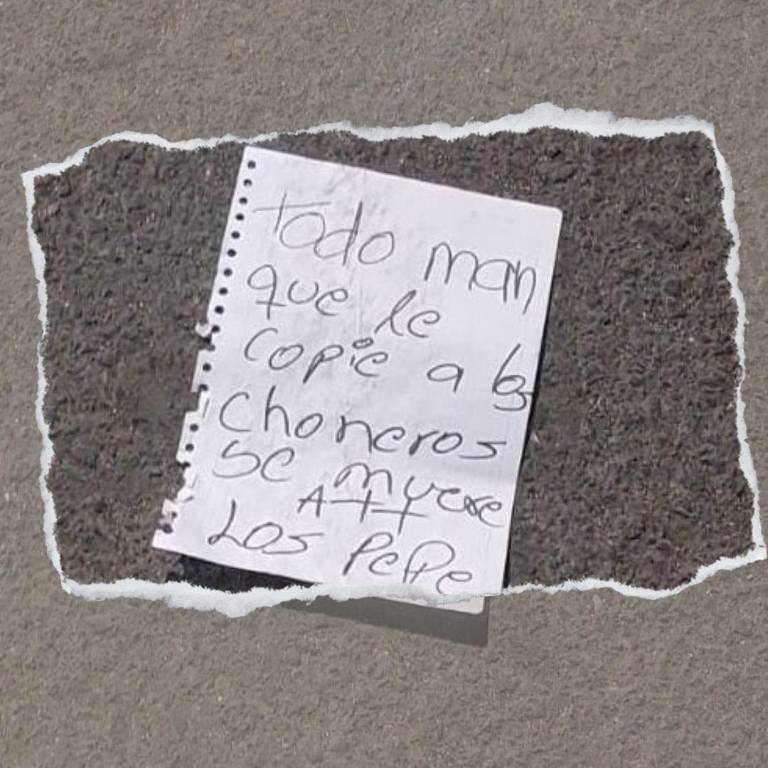 Todo man
que le
copie a los
choneros
se muere
ATT
Los PePe